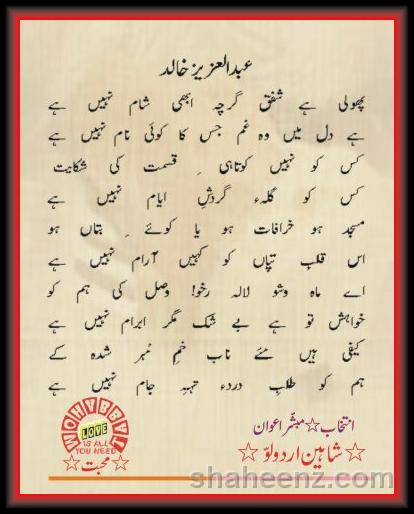 عبدالعزیز خالد
پھولی ہے شفق گرچہ ابھی شام نہیں ہے
ہے دل میں وہ غم جس کا کوئی نام نہیں ہے
کس کو نہیں کوتاہی ِ قسمت کی شکایت
کس کو گلہء گردشِ ایام نہیں ہے
مسجد ہو خرافات ہو یا کوئے ِ بتاں ہو
اس قلب تپاں کو کہیں آرام نہیں ہے
اے ماہ وشو لالہ رخو! وصل کی ہم کو
خواہش تو ہے بے شک مگر ابرام نہیں ہے
کیفی ہیں مئے ناب خمِ مُہر شدہ کے
ہم کو طلبِ دردء تہہِ جام نہیں ہے
انتخاب☆مبشر اعوان
☆شاہین اردو لو☆
LOVE
IS ALL
YOU NEED
☆محبت☆
shaheenz.com